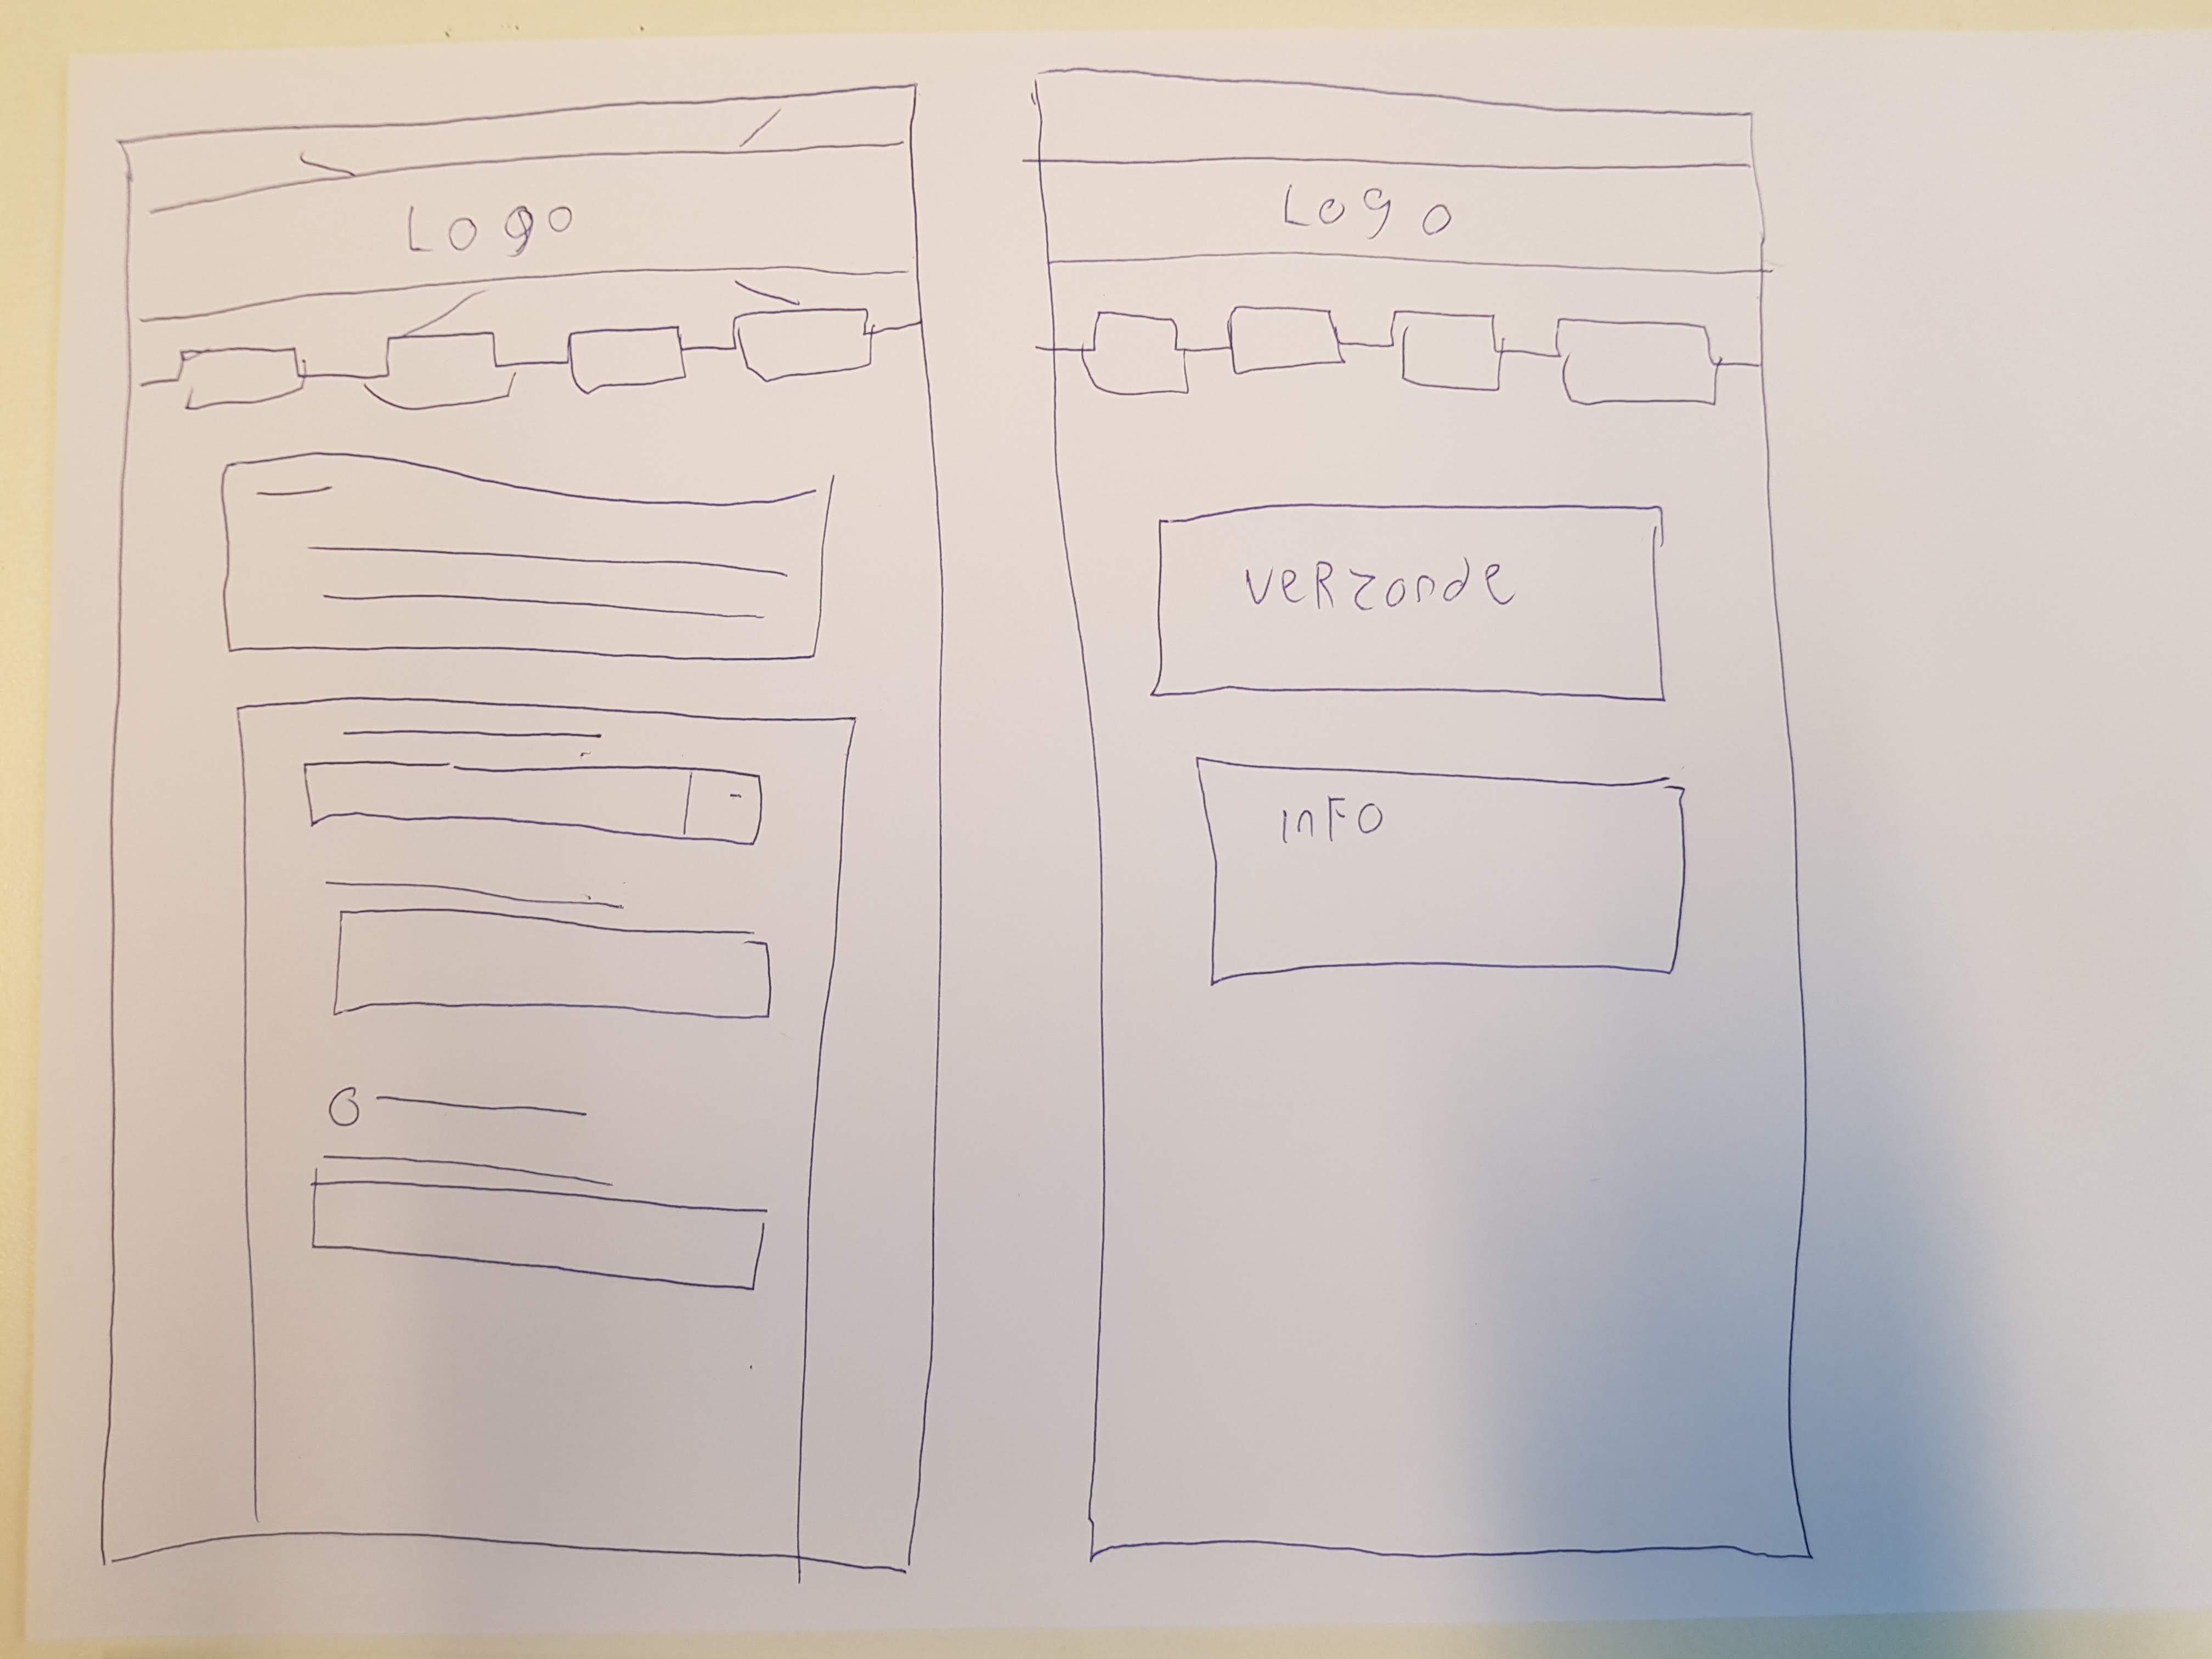 Logo
Logo
veRzonde
inFo